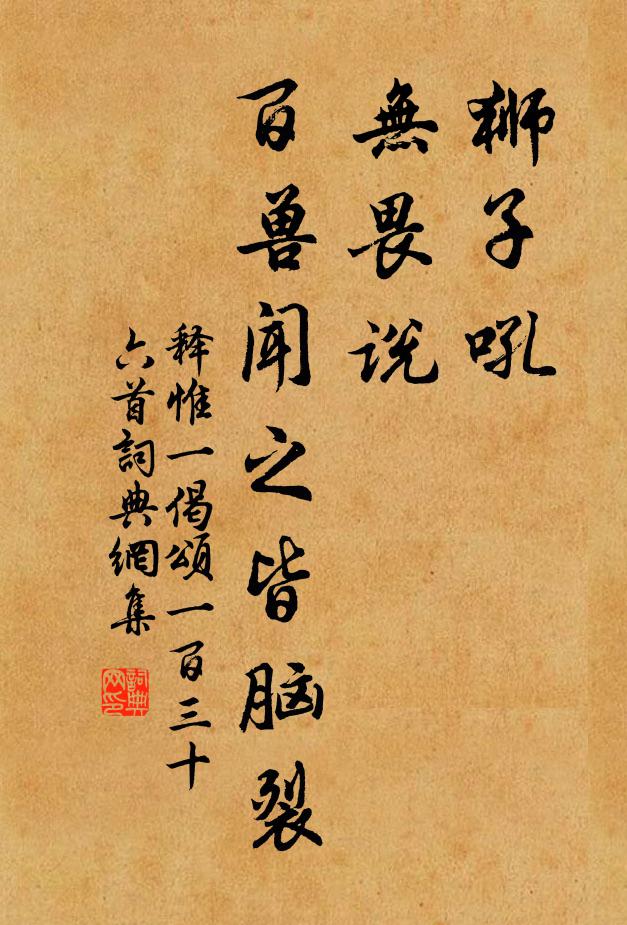 狮子吼
無畏說
百兽闻之皆脑裂
释惟一偈頌一百三十
六首詞典網集
詞典
网印